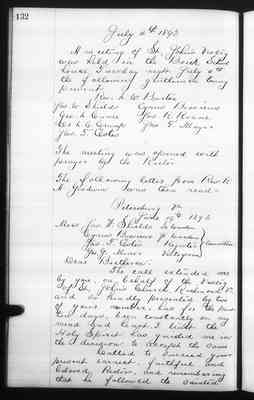 132
July 4th 1893
A meeting of St. John's Vestry
was held in the Brick School
House Tuesday night July 4th
the following gentlemen being
present.
Rev. L. W. Burton
Jas. W. Shields Cyrus Bossieux
Geo. L.
Jas. T.
The meeting was opened with
prayer by the Rector.
The following letter from Rev. R.
A. Goodwin was then read.
Petersburg Va
June 1893
Mess Jas W. Shields Sr Warden
Cyrus Bossieux Jr Warden
Jas. T. Register Committee
Jas. G. Vestryman
Dear Brethren:
The call extended me
by you, on behalf of the Vestry
of St. John's Church Richmond Va
and so kindly presented by two
of your number, has for the past
ten days, been constantly on my
mind and heart. I trust the
Holy Spirit has guided me in
the decision to accept the same
Called to succeed your
present earnest, faithful and
beloved Rector, and remembering
that he followed the sainted